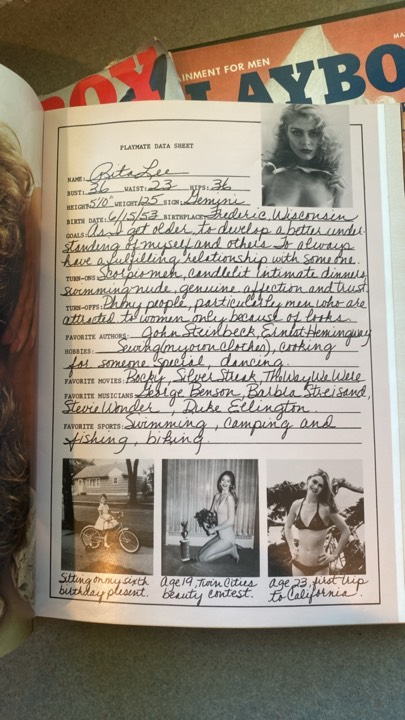 OY
INMENT FOR MEN
MA
LAYBO
PLAYMATE DATA SHEET
NAME: Rita Lee
BUST: 36 WAIST: 23 HIPS: 36
HEIGHT: 5'10" WEIGHT: 125 SIGN: Gemini
BIRTH DATE: 6/15/53 BIRTHPLACE: Frederic, Wisconsin
GOALS: As I get older, to develop a better under-
standing of myself and others. To always
have a fulfilling relationship with someone.
TURN-ONS: Scorpio men, candlelit intimate dinners,
swimming nude, genuine affection and trust.
TURN-OFFS: Phony people, particularly men who are
attracted to women only because of looks.
FAVORITE AUTHORS: John Steinbeck, Ernest Hemingway
HOBBIES: Sewing (my own clothes), cooking
for someone special, dancing.
FAVORITE MOVIES: Rocky, Silver Streak, The Way We Were
FAVORITE MUSICIANS: George Benson, Barbra Streisand,
Stevie Wonder, Duke Ellington.
FAVORITE SPORTS: Swimming, camping and
fishing, biking.
Sitting on my sixth
birthday present.
Age 19, Twin Cities
beauty contest.
Age 23, first trip
to California.